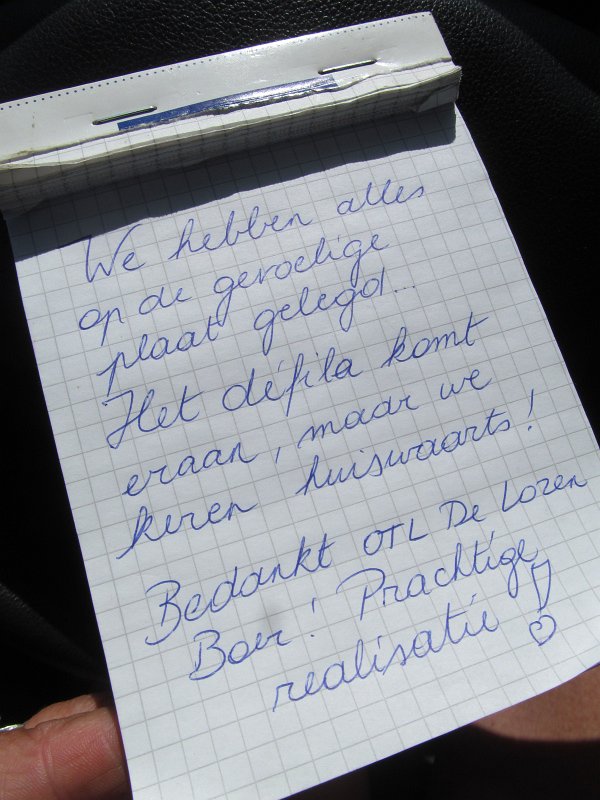 We hebben alles
op de gevoelige
plaat gelegd...
Het défila komt
eraan, maar we
keren huiswaarts!
Bedankt OTL De Loren
Boer! Prachtige
realisatie!